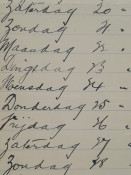 Zaterdag 20 "
Zondag 21 "
Maandag 22 "
Dingsdag 23
Woensdag 24 "
Donderdag 25 "
Vrijdag 26 "
Zaterdag 27 "
Zondag 28